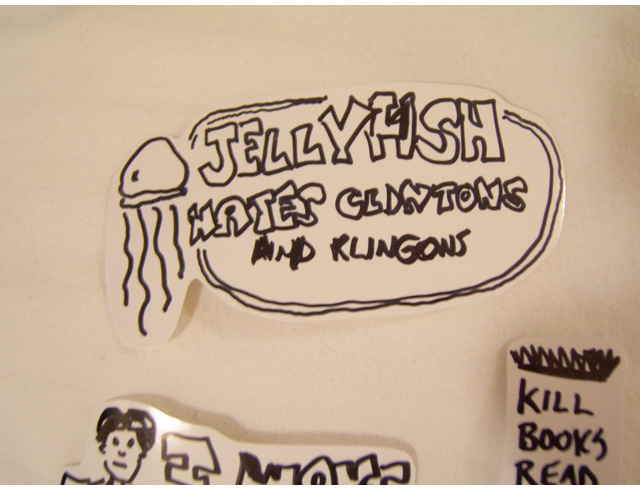 JELLYFISH
HATES CLINTONS
AND KLINGONS
KILL
BOOKS
READ